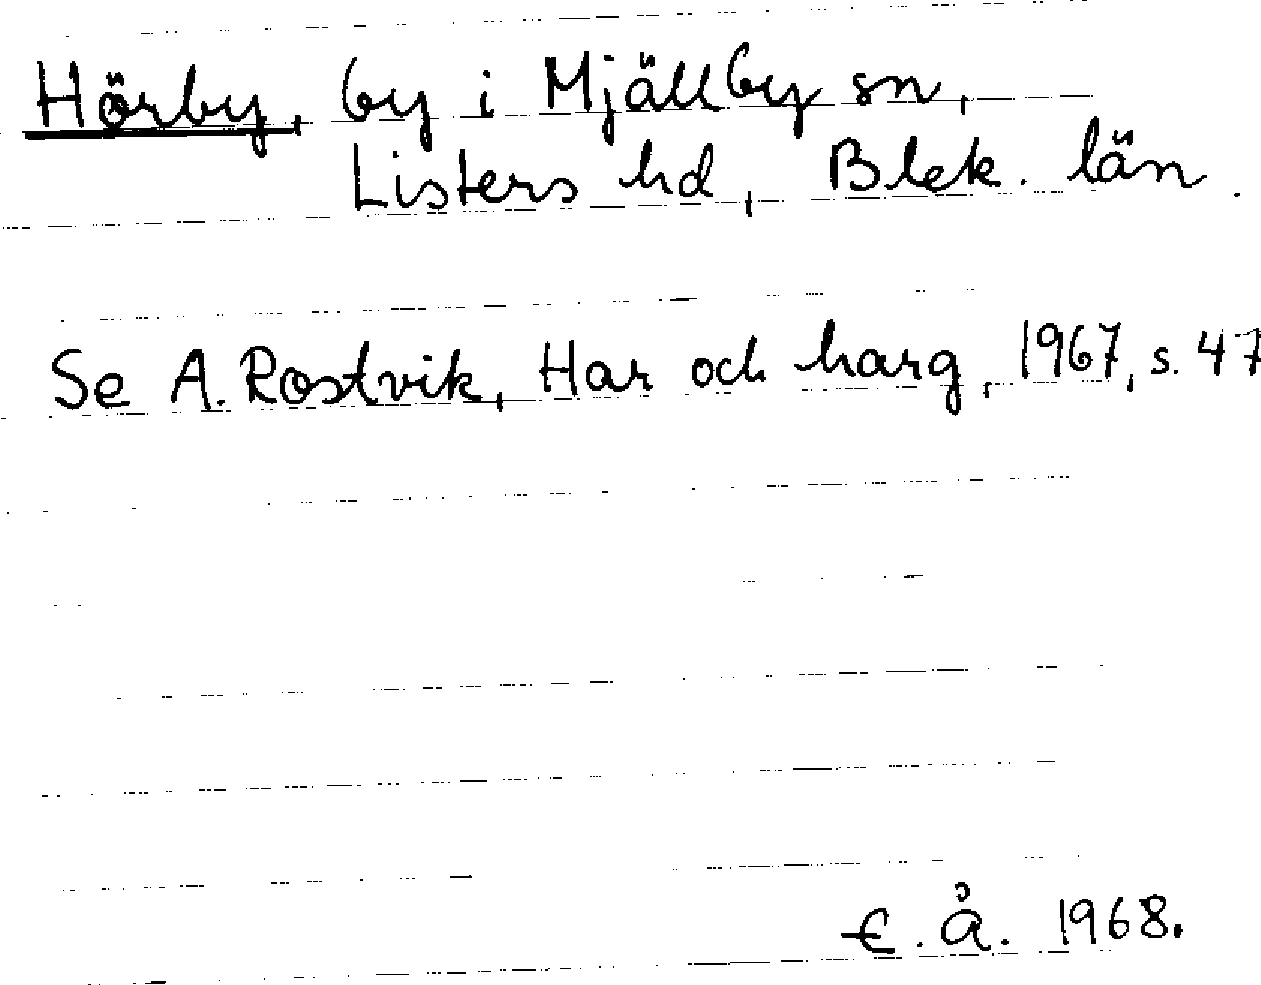 Hörby, by i Mjällby sn,
Listers hd, Blek. län.
Se A. Rostvik, Har och harg, 1967, s. 47
E. Å. 1968.